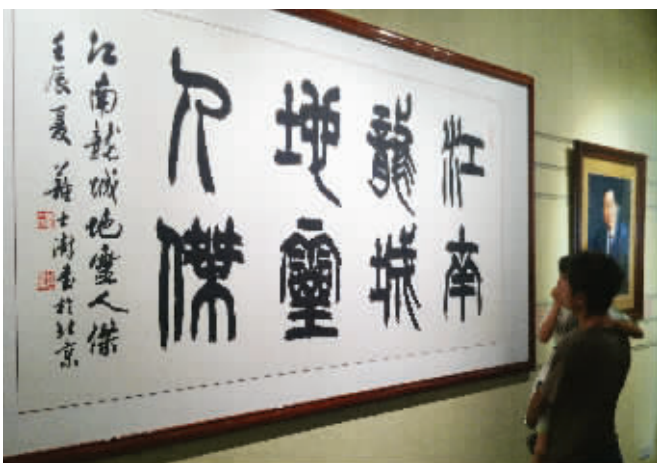 江南
龍城
地靈
人傑
江南龍城地靈人傑
壬辰夏 蘇士澍書於北京